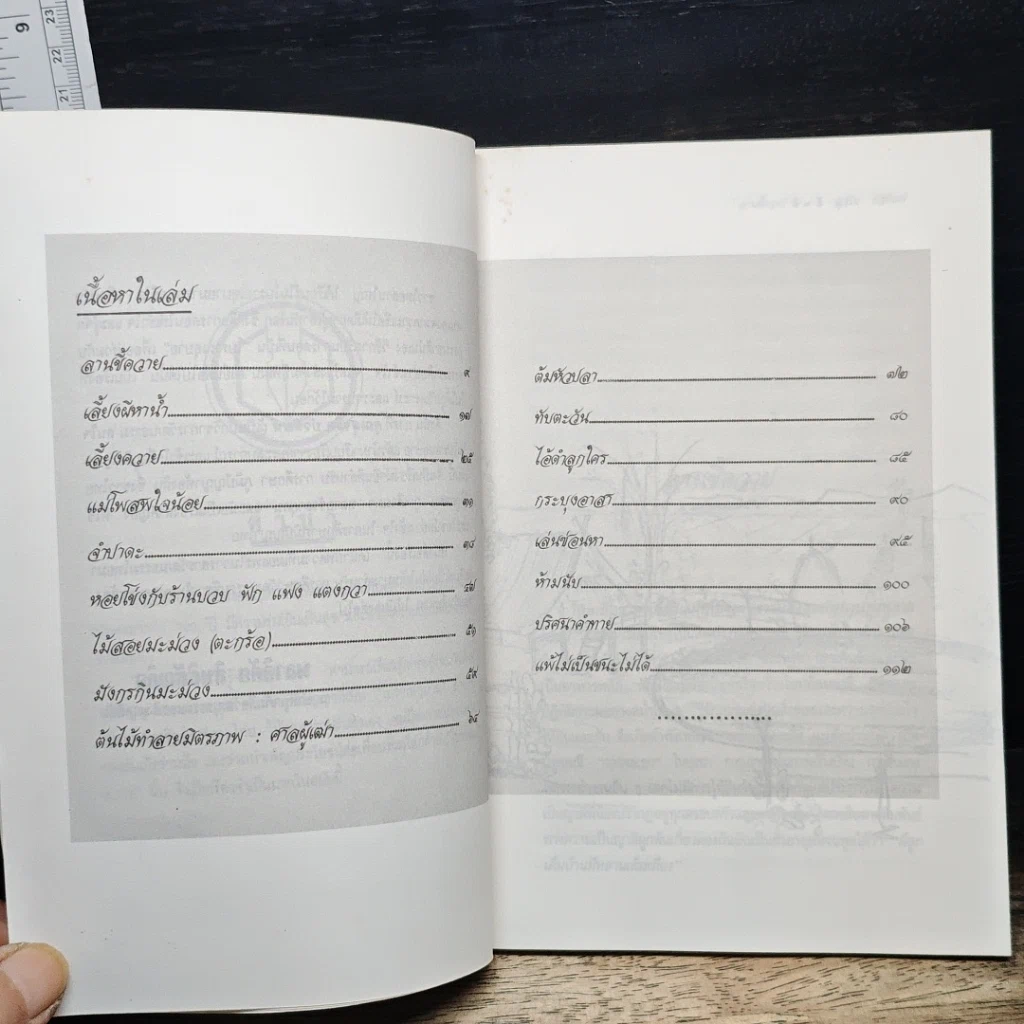 9
23
22
21
เนื้อหาในเล่ม
ลานขี้ควาย........ ๙
เลี้ยงผีหาน้ำ........ ๑๗
เลี้ยงควาย........ ๒๕
แม่โพสพใจน้อย........ ๓๑
จำปาดะ........ ๓๘
หอยโข่งกับร้านบวบ ฟัก แฟง แตงกวา........ ๔๗
ไม้สอยมะม่วง (ตะกร้อ)........ ๕๑
มังกรกินมะม่วง........ ๕๙
ต้นไม้ทำลายมิตรภาพ : ศาลผู้เฒ่า........ ๖๔
ต้มหัวปลา........ ๗๒
ทับตะวัน........ ๘๐
ไอ้ดำลูกใคร........ ๘๕
กระบุงอาสา........ ๙๐
เล่นซ่อนหา........ ๙๕
ห้ามนับ........ ๑๐๐
ปริศนาคำทาย........ ๑๐๖
แพ้ไม่เป็นชนะไม่ได้........ ๑๑๒